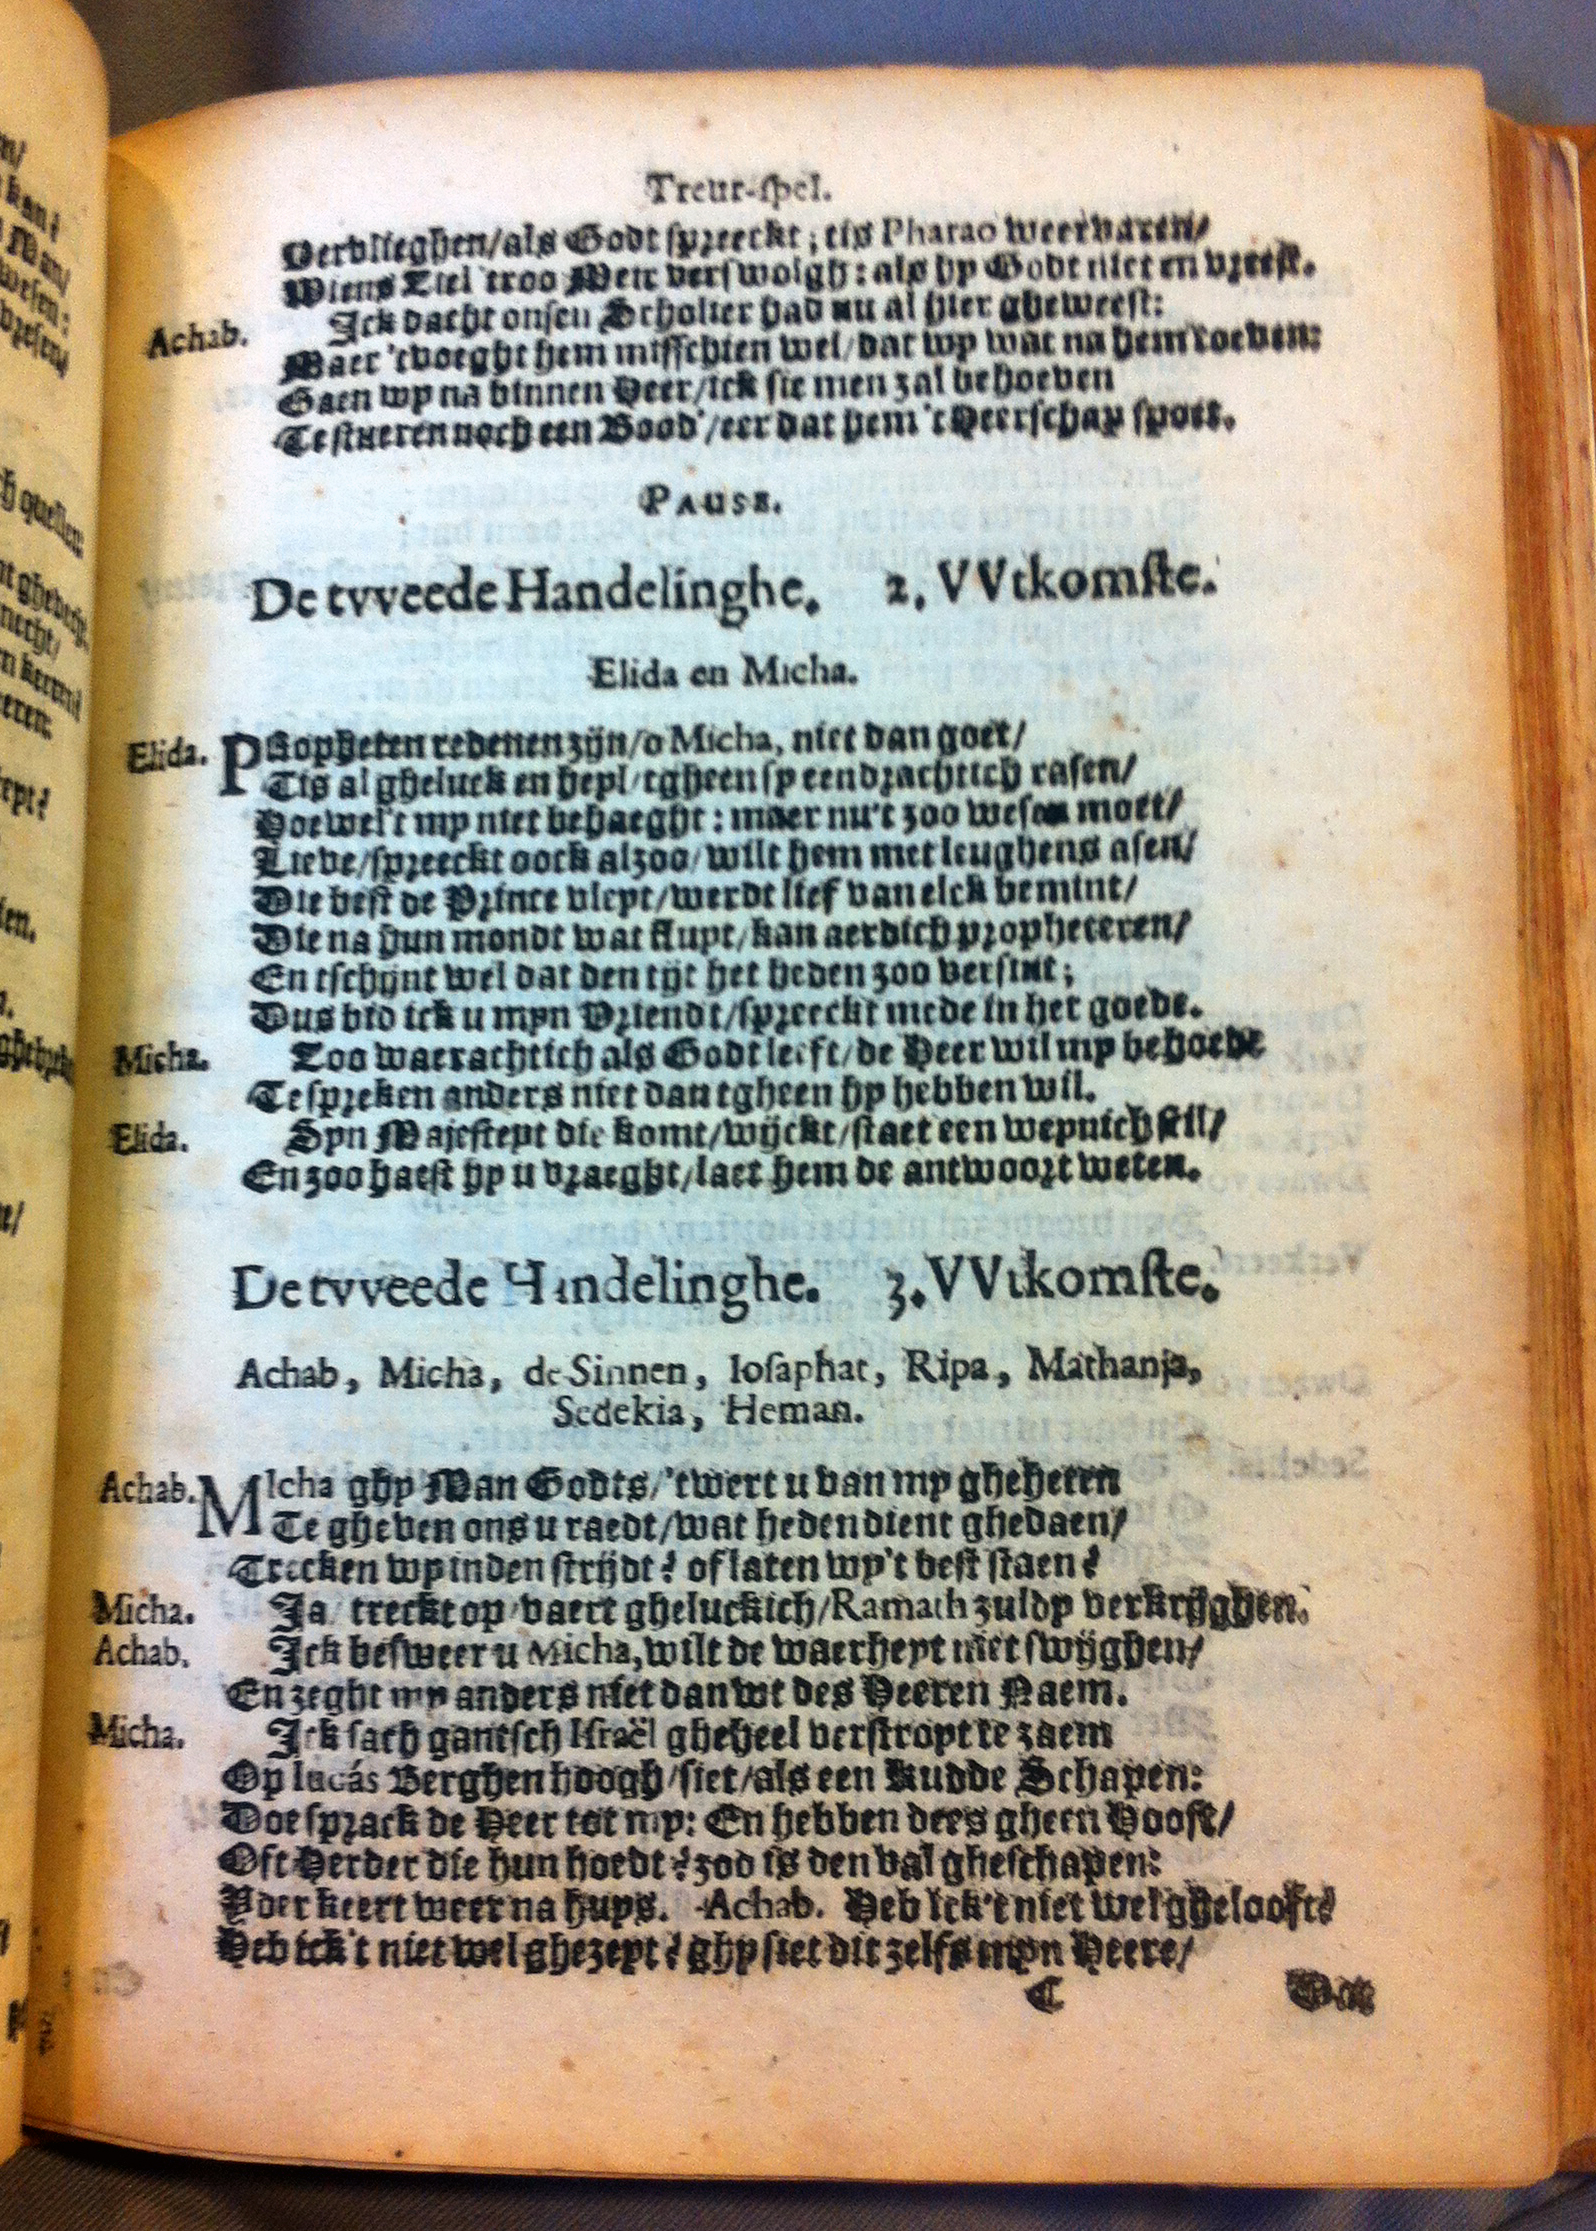 Treur-spel.
Vervlieghen/als Godt spreeckt; tis Pharao weervaren/
Wiens Ziel troo Meir verswolgh: als hy Godt niet en vreest.
Achab. Ick dacht onsen Scholier had nu al hier gheweest:
Maer 'tvoeght hem misschien wel/dat wy wat na hem toeven:
Gaen wy na binnen Heer/ick sie men zal behoeven
Te stueren noch een Bood'/eer dat hem 't Heerschap spoet.
PAUSE.
De tvveede Handelinghe. 2. VVtkomste.
Elida en Micha.
Elida. PRopheten redenen zijn/o Micha, niet dan goet/
Tis al gheluck en heyl/tgheen sy eendrachtich rasen/
Hoewel't my niet behaeght: maer nu't zoo wesen moet/
Lieve/spreeckt oock alzoo/wilt hem met leughens asen/
Die best de Prince vleyt/werdt lief van elck bemint/
Die na hun mondt wat fluyt/kan aerdich propheteren/
En tschijnt wel dat den tijt het heden zoo versint;
Dus bid ick u myn Vriendt/spreeckt mede in het goede.
Micha. Zoo waerachtich als Godt leeft/de Heer wil my behoede
Te spreken anders niet dan tgheen hy hebben wil.
Elida. Syn Majesteyt die komt/wijckt/staet een weynich stil/
En zoo haest hy u vraeght/laet hem de antwoort weten.
De tvveede Handelinghe. 3. VVtkomste.
Achab, Micha, de Sinnen, Iosaphat, Ripa, Mathanja,
Sedekia, Heman.
Achab. MIcha ghy Man Godts/'twert u van my gheheten
Te gheven ons u raedt/wat heden dient ghedaen/
Trecken wy inden strijdt? of laten wy't best staen?
Micha. Ja/treckt op/vaert gheluckich/Ramath zuldy verkrijghen.
Achab. Ick besweer u Micha, wilt de waerheyt niet swijghen/
En zeght my anders niet dan wt des Heeren Naem.
Micha. Ick sach gantsch Israël gheheel verstroyt te zaem
Op lucás Berghen hoogh/siet/als een Kudde Schapen:
Doe sprack de Heer tot my: En hebben dees gheen Hooft/
Oft Herder die hun hoedt? zoo is den val gheschapen:
Yder keert weer na huys. Achab. Heb ick't niet wel ghelooft?
Heb ick't niet wel ghezeyt? ghy siet dit zelfs myn Heere/
C